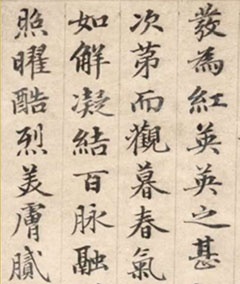 發為紅英英之甚
次第而觀暮春氣
如解凝結百脉融
照曜酷烈美膚膩